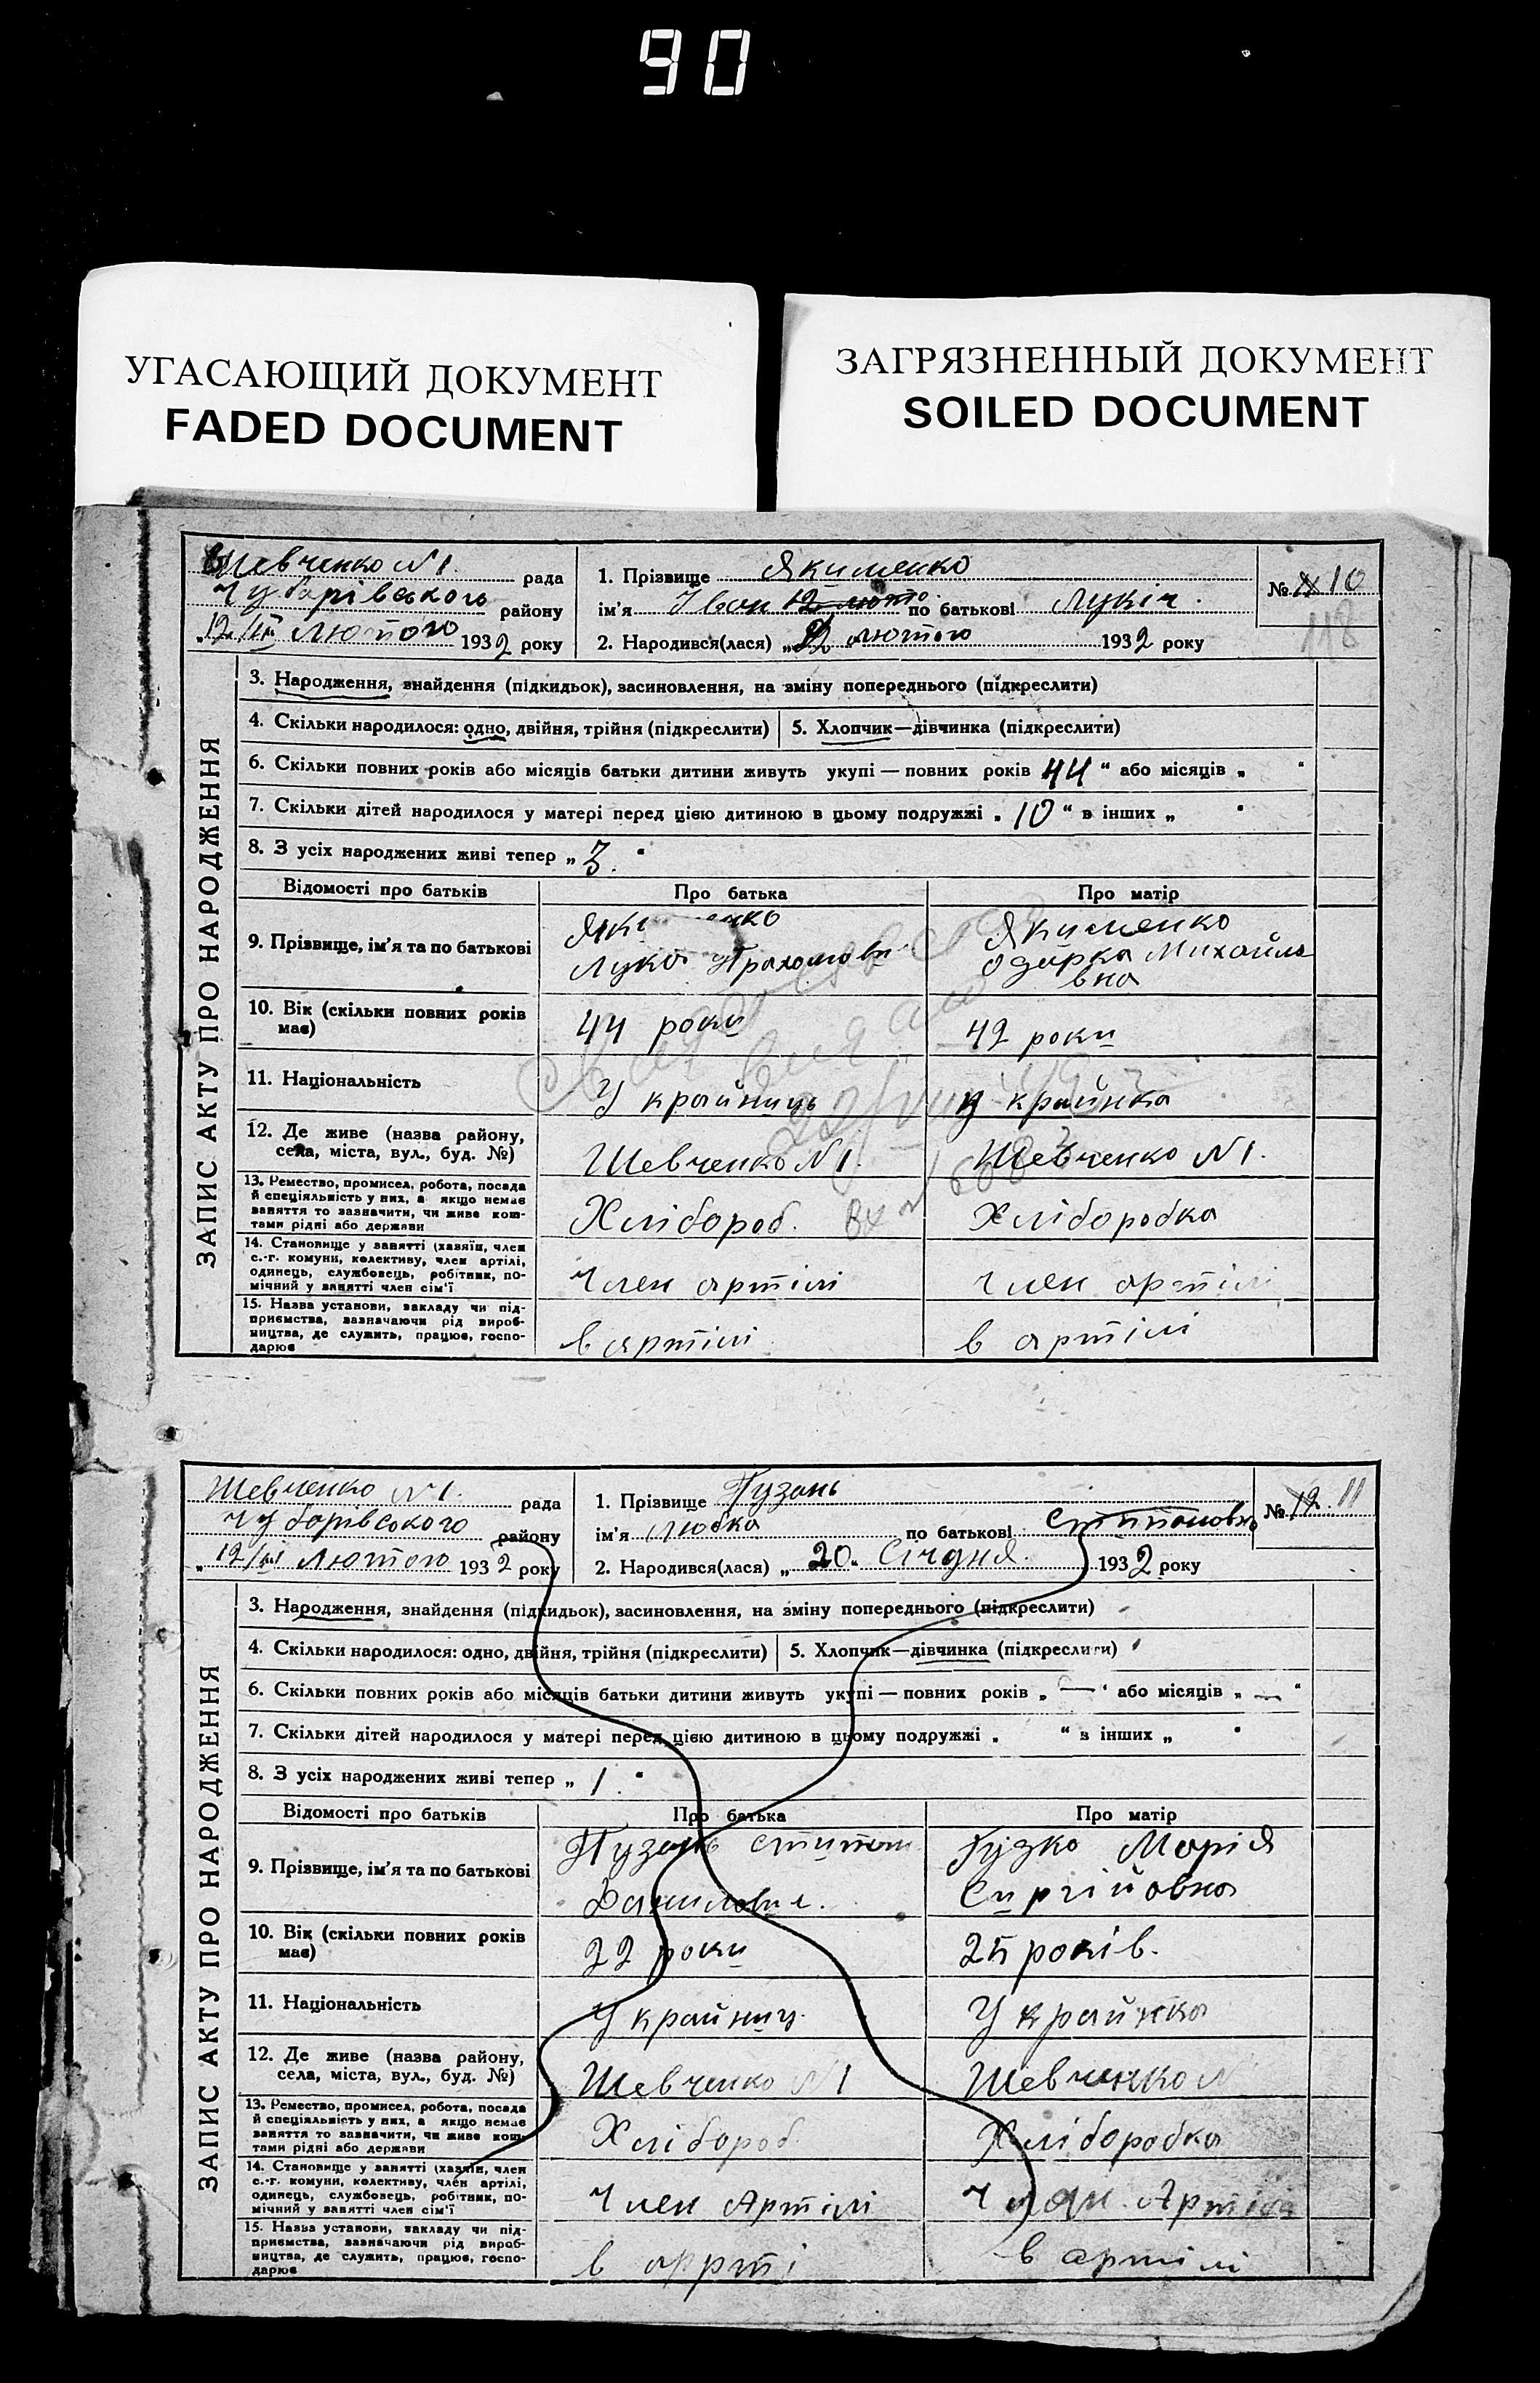 90
УГАСАЮЩИЙ ДОКУМЕНТ
FADED DOCUMENT
ЗАГРЯЗНЕННЫЙ ДОКУМЕНТ
SOILED DOCUMENT
Шевченко №1. рада
Чубарівського району
„12/III лютого 1932 року
1. Прізвище Якименко
ім'я Іван 12 люто по батькові Лукіч.
2. Народився(лася) „ лютого 1932 року
№ 10
118
ЗАПИС АКТУ ПРО НАРОДЖЕННЯ
3. Народження, знайдення (підкидьок), засиновлення, на зміну попереднього (підкреслити)
4. Скільки народилося: одно, двійня, трійня (підкреслити) 5. Хлопчик—дівчинка (підкреслити)
6. Скільки повних років або місяців батьки дитини живуть укупі — повних років 44 “ або місяців „ “
7. Скільки дітей народилося у матері перед цією дитиною в цьому подружжі „ 10 “ в інших „ “
8. З усіх народжених живі тепер „ 3. “
Відомості про батьків Про батька Про матір
9. Прізвище, ім'я та по батькові
Лука
Якименко
Одарка Михайла
вна
10. Вік (скільки повних років має)
44 роки
42 роки
11. Національність
Украйниць
Украйнка
12. Де живе (назва району,
села, міста, вул., буд. №)
Шевченко №1.
Шевченко №1.
13. Ремество, промисел, робота, посада
й спеціяльність у них, а якщо немає
заняття то зазначити, чи живе кош-
тами рідні або держави
Хлібороб.
Хліборобка
14. Становище у занятті (хазяїн, член
с.-г. комуни, колективу, член артілі,
одинець, службовець, робітник, по-
мічний у занятті член сім'ї
Член артілі
Член артілі
15. Назва установи, закладу чи під-
приємства, зазначаючи рід вироб-
ництва, де служить, працює, госпо-
дарює
в артілі
в артілі
Шевченко №1. рада
Чубарівсокого району
„12/III лютого 1932 року
1. Прізвище Пузань
ім'я Любка по батькові
2. Народився(лася) „ 20. Січдня. 1932 року
№ 12. 11
ЗАПИС АКТУ ПРО НАРОДЖЕННЯ
3. Народження, знайдення (підкидьок), засиновлення, на зміну попереднього (підкреслити)
4. Скільки народилося: одно, двійня, трійня (підкреслити) 5. Хлопчик—дівчинка (підкреслити)
6. Скільки повних років або місяців батьки дитини живуть укупі — повних років „ — “ або місяців „ — “
7. Скільки дітей народилося у матері перед цією дитиною в цьому подружжі „ “ в інших „ “
8. З усіх народжених живі тепер „ 1. “
Відомості про батьків Про батька Про матір
9. Прізвище, ім'я та по батькові
Пузань
Данилович.
Гузко Марія
Сиргійовна
10. Вік (скільки повних років має)
22 роки
25 років.
11. Національність
Украйниц.
Украйнка
12. Де живе (назва району,
села, міста, вул., буд. №)
Шевченко №1
Шевченко №
13. Ремество, промисел, робота, посада
й спеціяльність у них, а якщо немає
заняття то зазначити, чи живе кош-
тами рідні або держави
Хлібороб
Хліборобка
14. Становище у занятті (хазяїн, член
с.-г. комуни, колективу, член артілі,
одинець, службовець, робітник, по-
мічний у занятті член сім'ї
Член Артілі
Член. Артілі
15. Назва установи, закладу чи під-
приємства, зазначаючи рід вироб-
ництва, де служить, працює, госпо-
дарює
в
в артілі